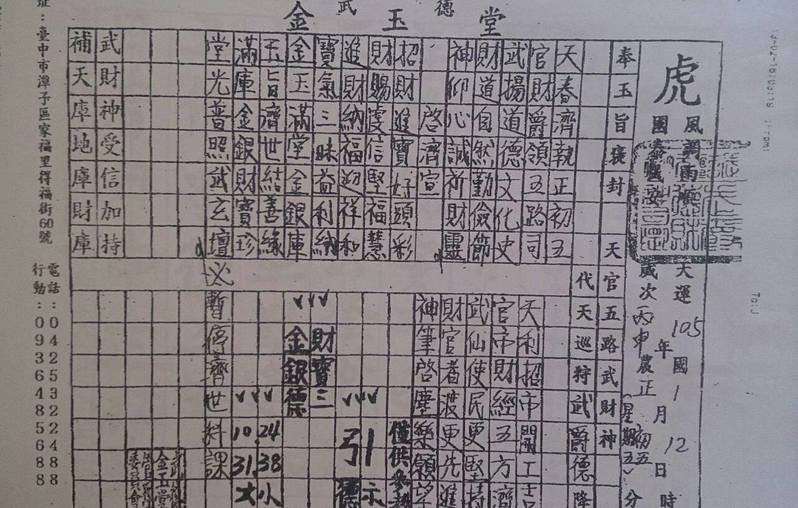 武德
金玉堂
虎
風調雨順
國泰民安
天運105年國1月12日時
歲次丙申農正初五(星期五)分
奉玉旨褒封 天官五路武財神
代天巡狩武爵德降
天春濟執正初五
官財爵領五路司
武揚道德文化史
財道自然勤儉節
神仰心誠祈財靈
啓濟宣
招財進寶好頭彩
財賜婁信堅福慧
進財納福迎祥和
寶氣三昧益利納
金玉滿堂金銀庫
玉旨濟世結善緣
滿庫金銀財寶珍
堂光普照武玄壇
天利招市開工吉
官帝財經五方濟
武仙使民更堅持
財官者渡更先進
神筆啓塵樂願望
僅供參考
示
引德
財寶三
金銀德
24 38 小
10 31 大
必暫停濟世科課
武財神受信加持
補天庫地庫財庫
金玉堂
管理
委員會
電話:0425322488
行動:0936485688
址:臺中市潭子區家福里得福街60號